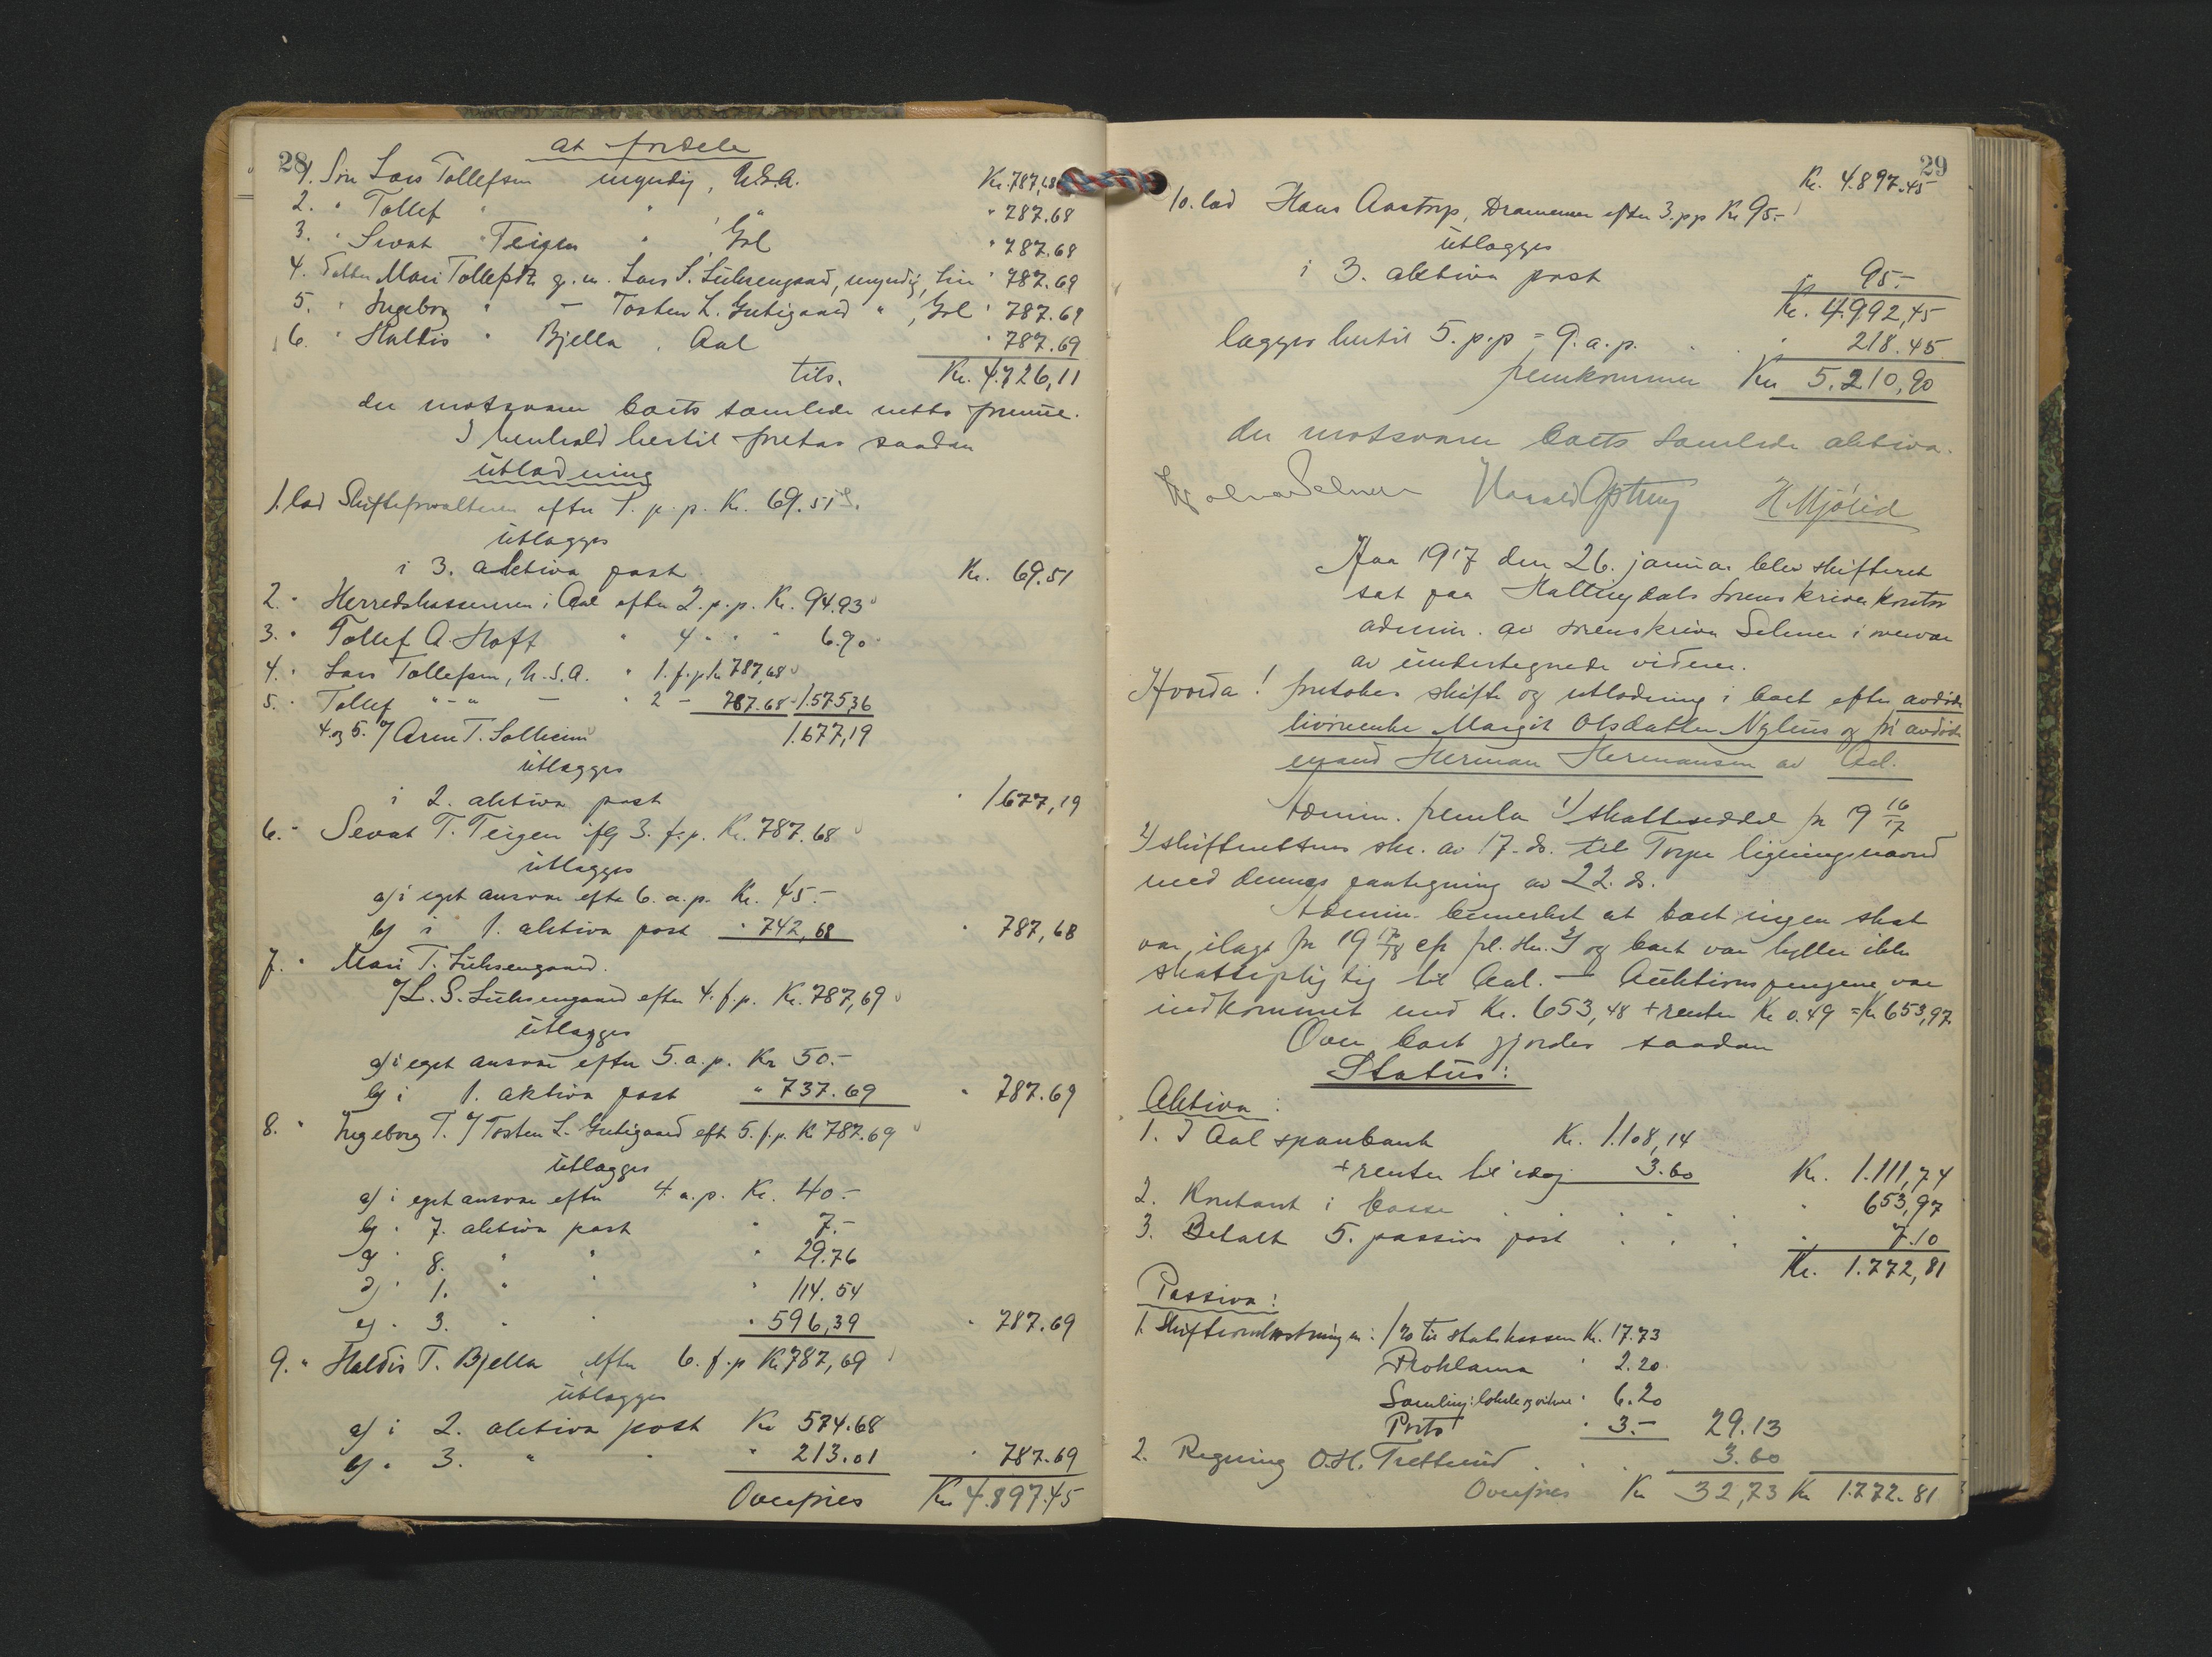 28
at fordele
1. Søn Lars Tollefsen myndig, U.S.A. Kr. 787,68
2. " Tollef " " " " 787.68
3. " Sevat Teigen " , Gol " 787.68
4. Datter Mari Tollefsdtr g. m. Lars S. , myndig, " 787.69
5. " Ingeborg " - Tosten L. Grötigaard " , Gol " 787.69
6. " Haldis " Bjella , Aal " 787.69
tils. Kr. 4.726,11
der motsvarer boets samlede netto formue.
I henhold hertil foretas saadan
utlodning
1. lod Skifteforvalteren efter 1. p. p. Kr. 69.51
utlægges
i 3. aktiva post Kr. 69.51
2. " Herredskassereren i Aal efter 2. p. p. Kr. 94.93
3. " Tollef A. Hoff " 4 " " " 6.90
4. " Lars Tollefsen, U.S.A. " 1. f. p. kr 787,68
5. " Tollef " - " — " 2 - 787.68 - 1.575,36
4. og 5. v/ Arne T. Solheim 1.677,19
utlægges
i 2. aktiva post " 1677,19
6. " Sevat T. Teigen ifg 3. f. p. Kr. 787.68
utlægges
a) i eget ansvar efter 6. a. p. Kr. 45.-
b) i 1. aktiva post " 742,68 " 787,68
7. " Mari T.
v/ L. S. efter 4. f. p. Kr. 787,69
utlægges
a) i eget ansvar efter 5. a. p. Kr 50.-
b) i 1. aktiva post " 737.69 " 787.69
8. " Ingeborg T. v/ Tosten L. Grötigaard eft. 5. f. p. Kr 787.69
utlægges
a) i eget ansvar efter 4. a. p. Kr. 40.-
b) " 7. aktiva post " 7.-
c) " 8. " " " 29.76
d) " 1. " " " 114.54
e) " 3. " " " 596,39 " 787.69
9. " Haldis T. Bjella efter 6. f. p Kr 787,69
utlægges
a) i 2. aktiva post Kr 574.68
b) " 3. " " " 213.01 " 787.69
Overføres Kr 4.897.45
29
Kr. 4.897.45
10. lod Hans Aastorp, Drammen efter 3. p p Kr 95.-
utlægges
i 3. aktiva post " 95.-
Kr. 4.992,45
lægges hertil 5. p. p = 9. a. p. . . " 218.45
fremkommer Kr 5.210,90
der motsvarer boets samlede aktiva.
Selmer Harald H. Mjølid
Aar 1917 den 26. januar blev skifteret
sat paa Hallingdals sorenskriverkontor
admin. av sorenskriver Selmer i overvær
av undertegnede vidner.
Hvorda! foretokes skifte og utlodning i boet efter avdøde
Margit Olsdatter Nyhus og før avdøde
mand Herman Hermansen av Aal.
Admin. femla 1/ skatteseddel for 19 16/17
2/ skifterettens skr. av 17. ds. til Torpe ligningsnævnd
med dennes paategning av 22. ds.
Admin. bemerket at boet ingen skat
var ilagt for 19 17/18 efter frl. skr. 2/ og boet var heller ikke
skattepligtig til Aal. — Auktionspengene var
indkommet med Kr. 653,48 + renter Kr 0.49 = Kr 653,97
Over boet gjordes saadan
Status:
Aktiva:
1. I Aal sparebank Kr. 1.108,14
+ renter til idag 3.60 Kr. 1.111,74
2. Kontant i kasse . . . . " 653,97
3. Betalt 5. passiva post . . . " 7.10
Kr. 1.772,81
Passiva:
1. Skifteomkostninger: 1 % til statskassen Kr. 17.73
Proklama " 2.20
Samling: lokale og vidner " 6.20
Porto " 3.- 29.13
2. Regning O. H. Tretterud . . . 3.60
Overføres Kr 32,73 Kr 1.772.81